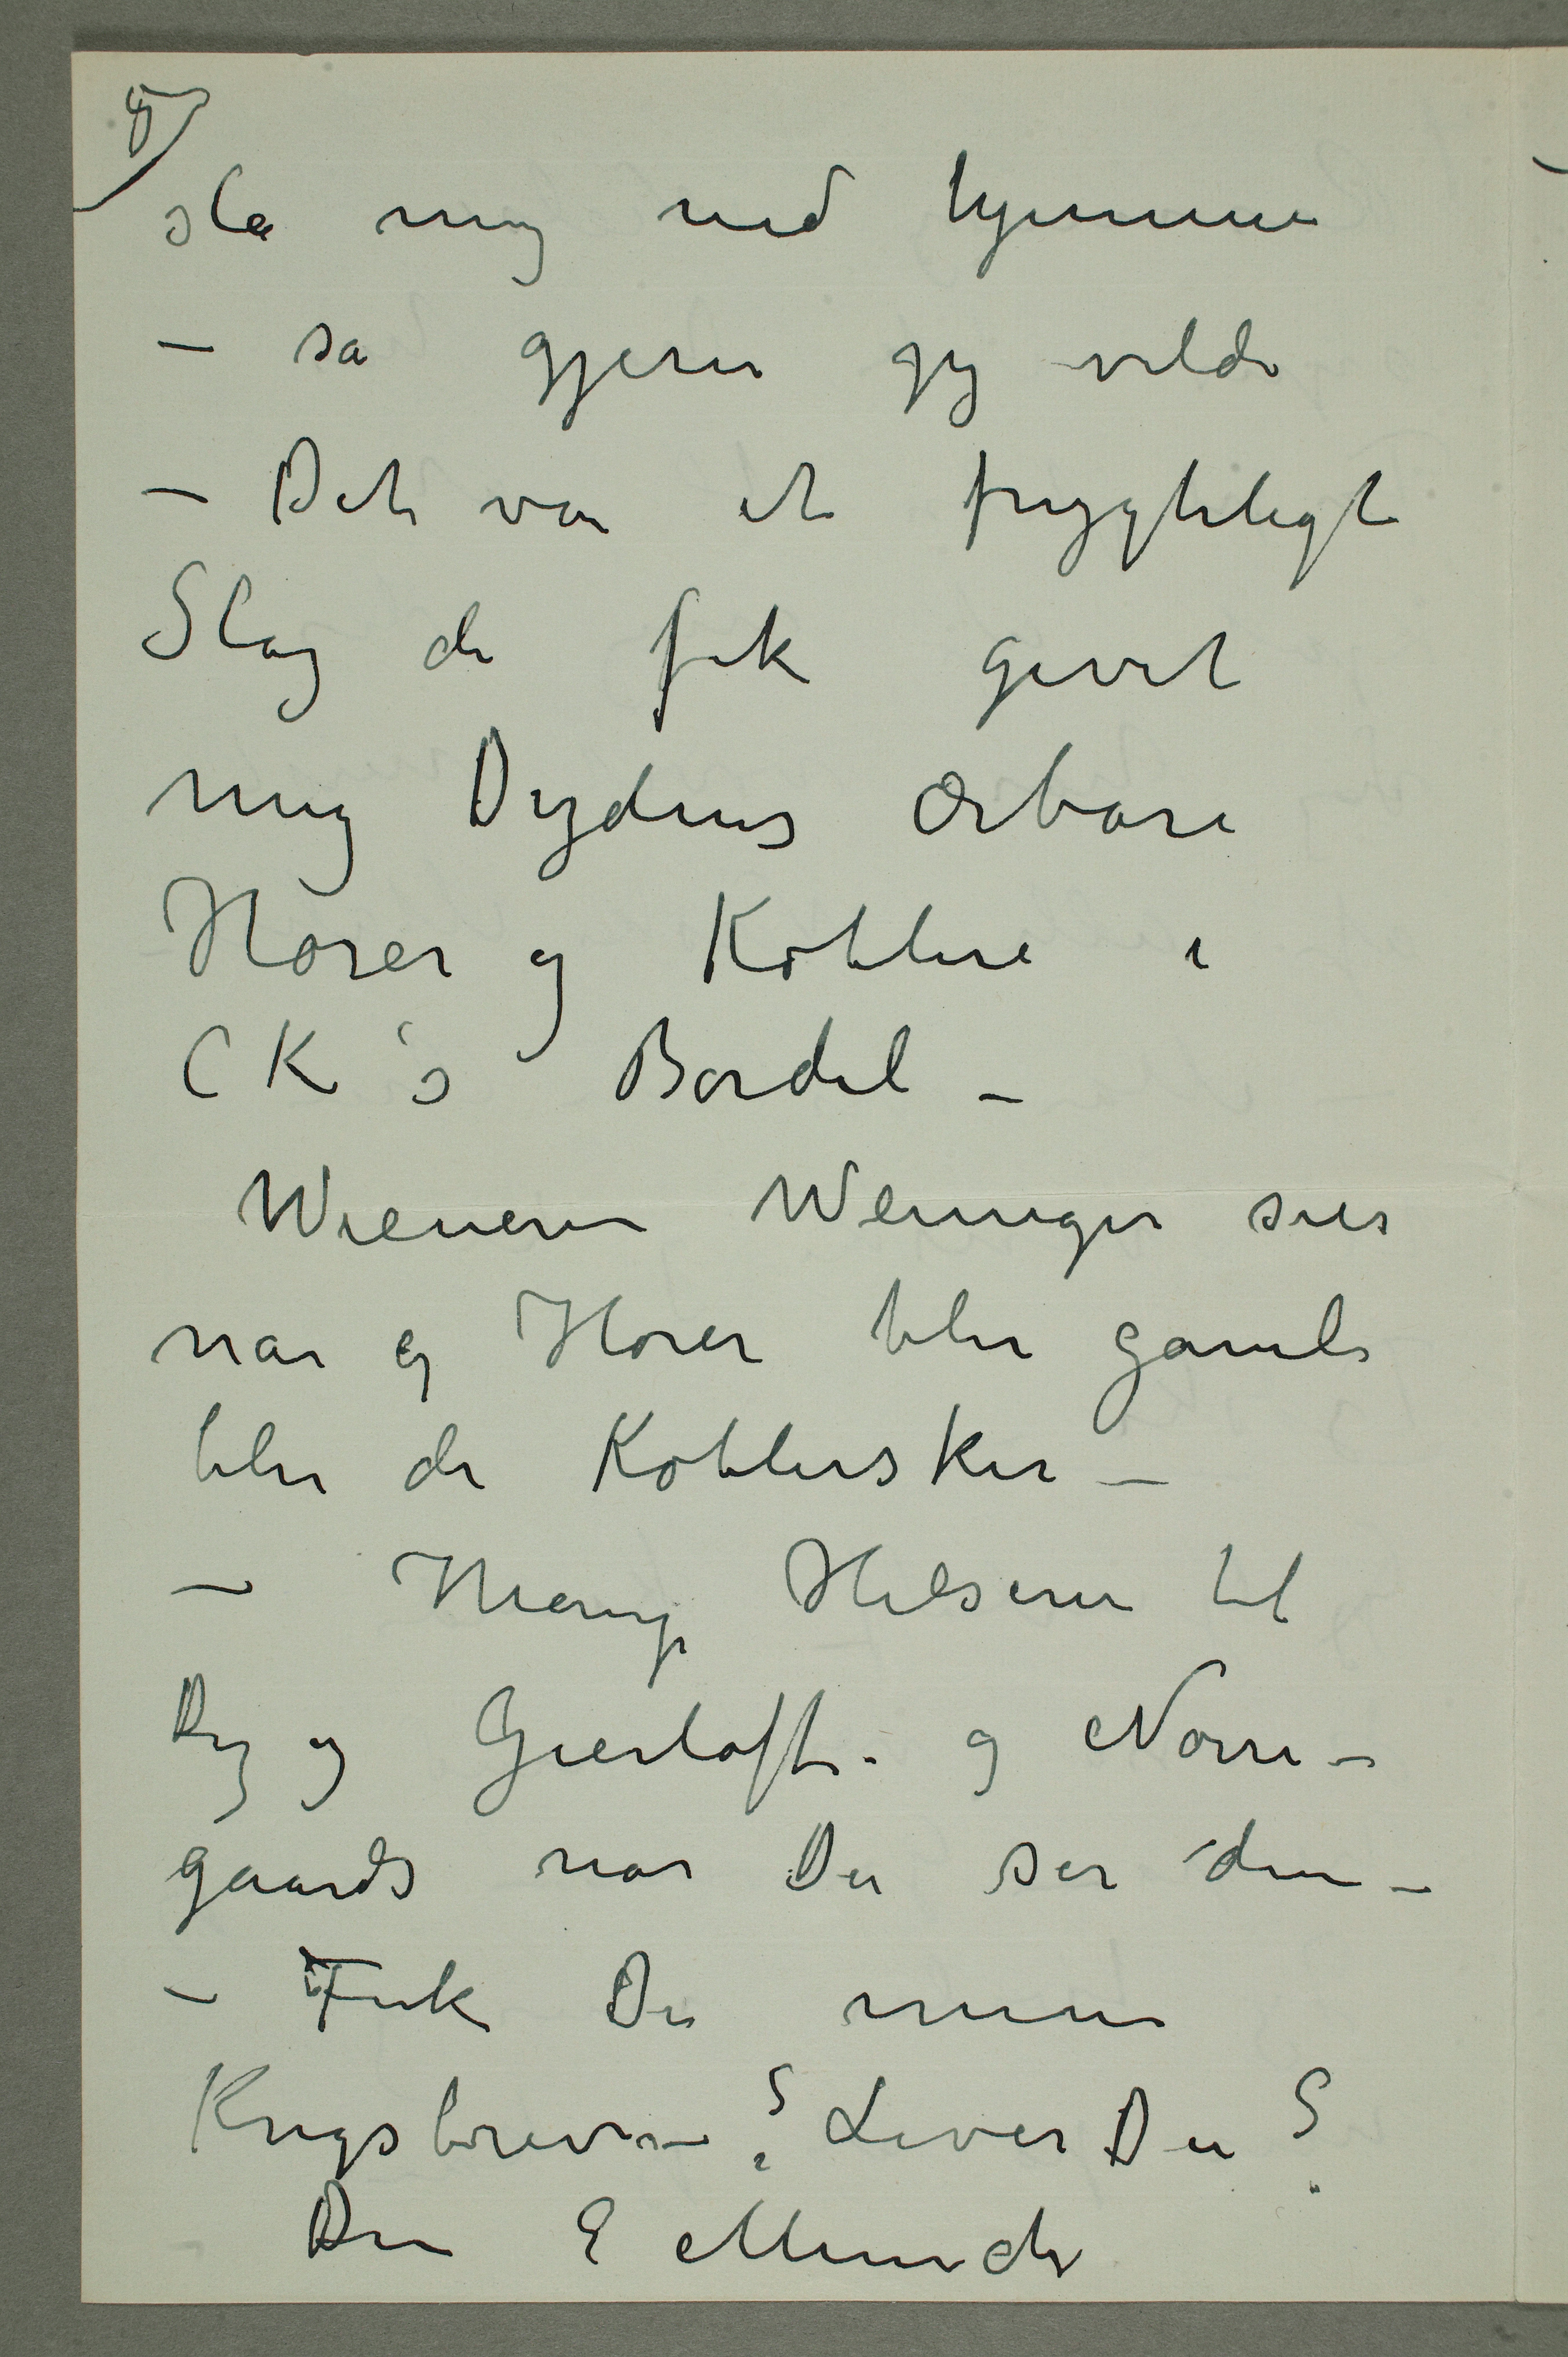 slå mig ned hjemme
– så gjerne jeg vilde
– Det var et frygteligt
Slag de fik givet
mig Dydens ærbare
Horer og Koblere i
CK's Bordel –
Wieneren Weininger sier
når ej Horer blir gamle
blir de Koblersker –
– Mange Hilsener til
Dig og Gierløffs. og Nørre–
gaards når Du ser dem –
– Fik Du mine
Krigsbreve – ? Lever Du ?
Din E Munch